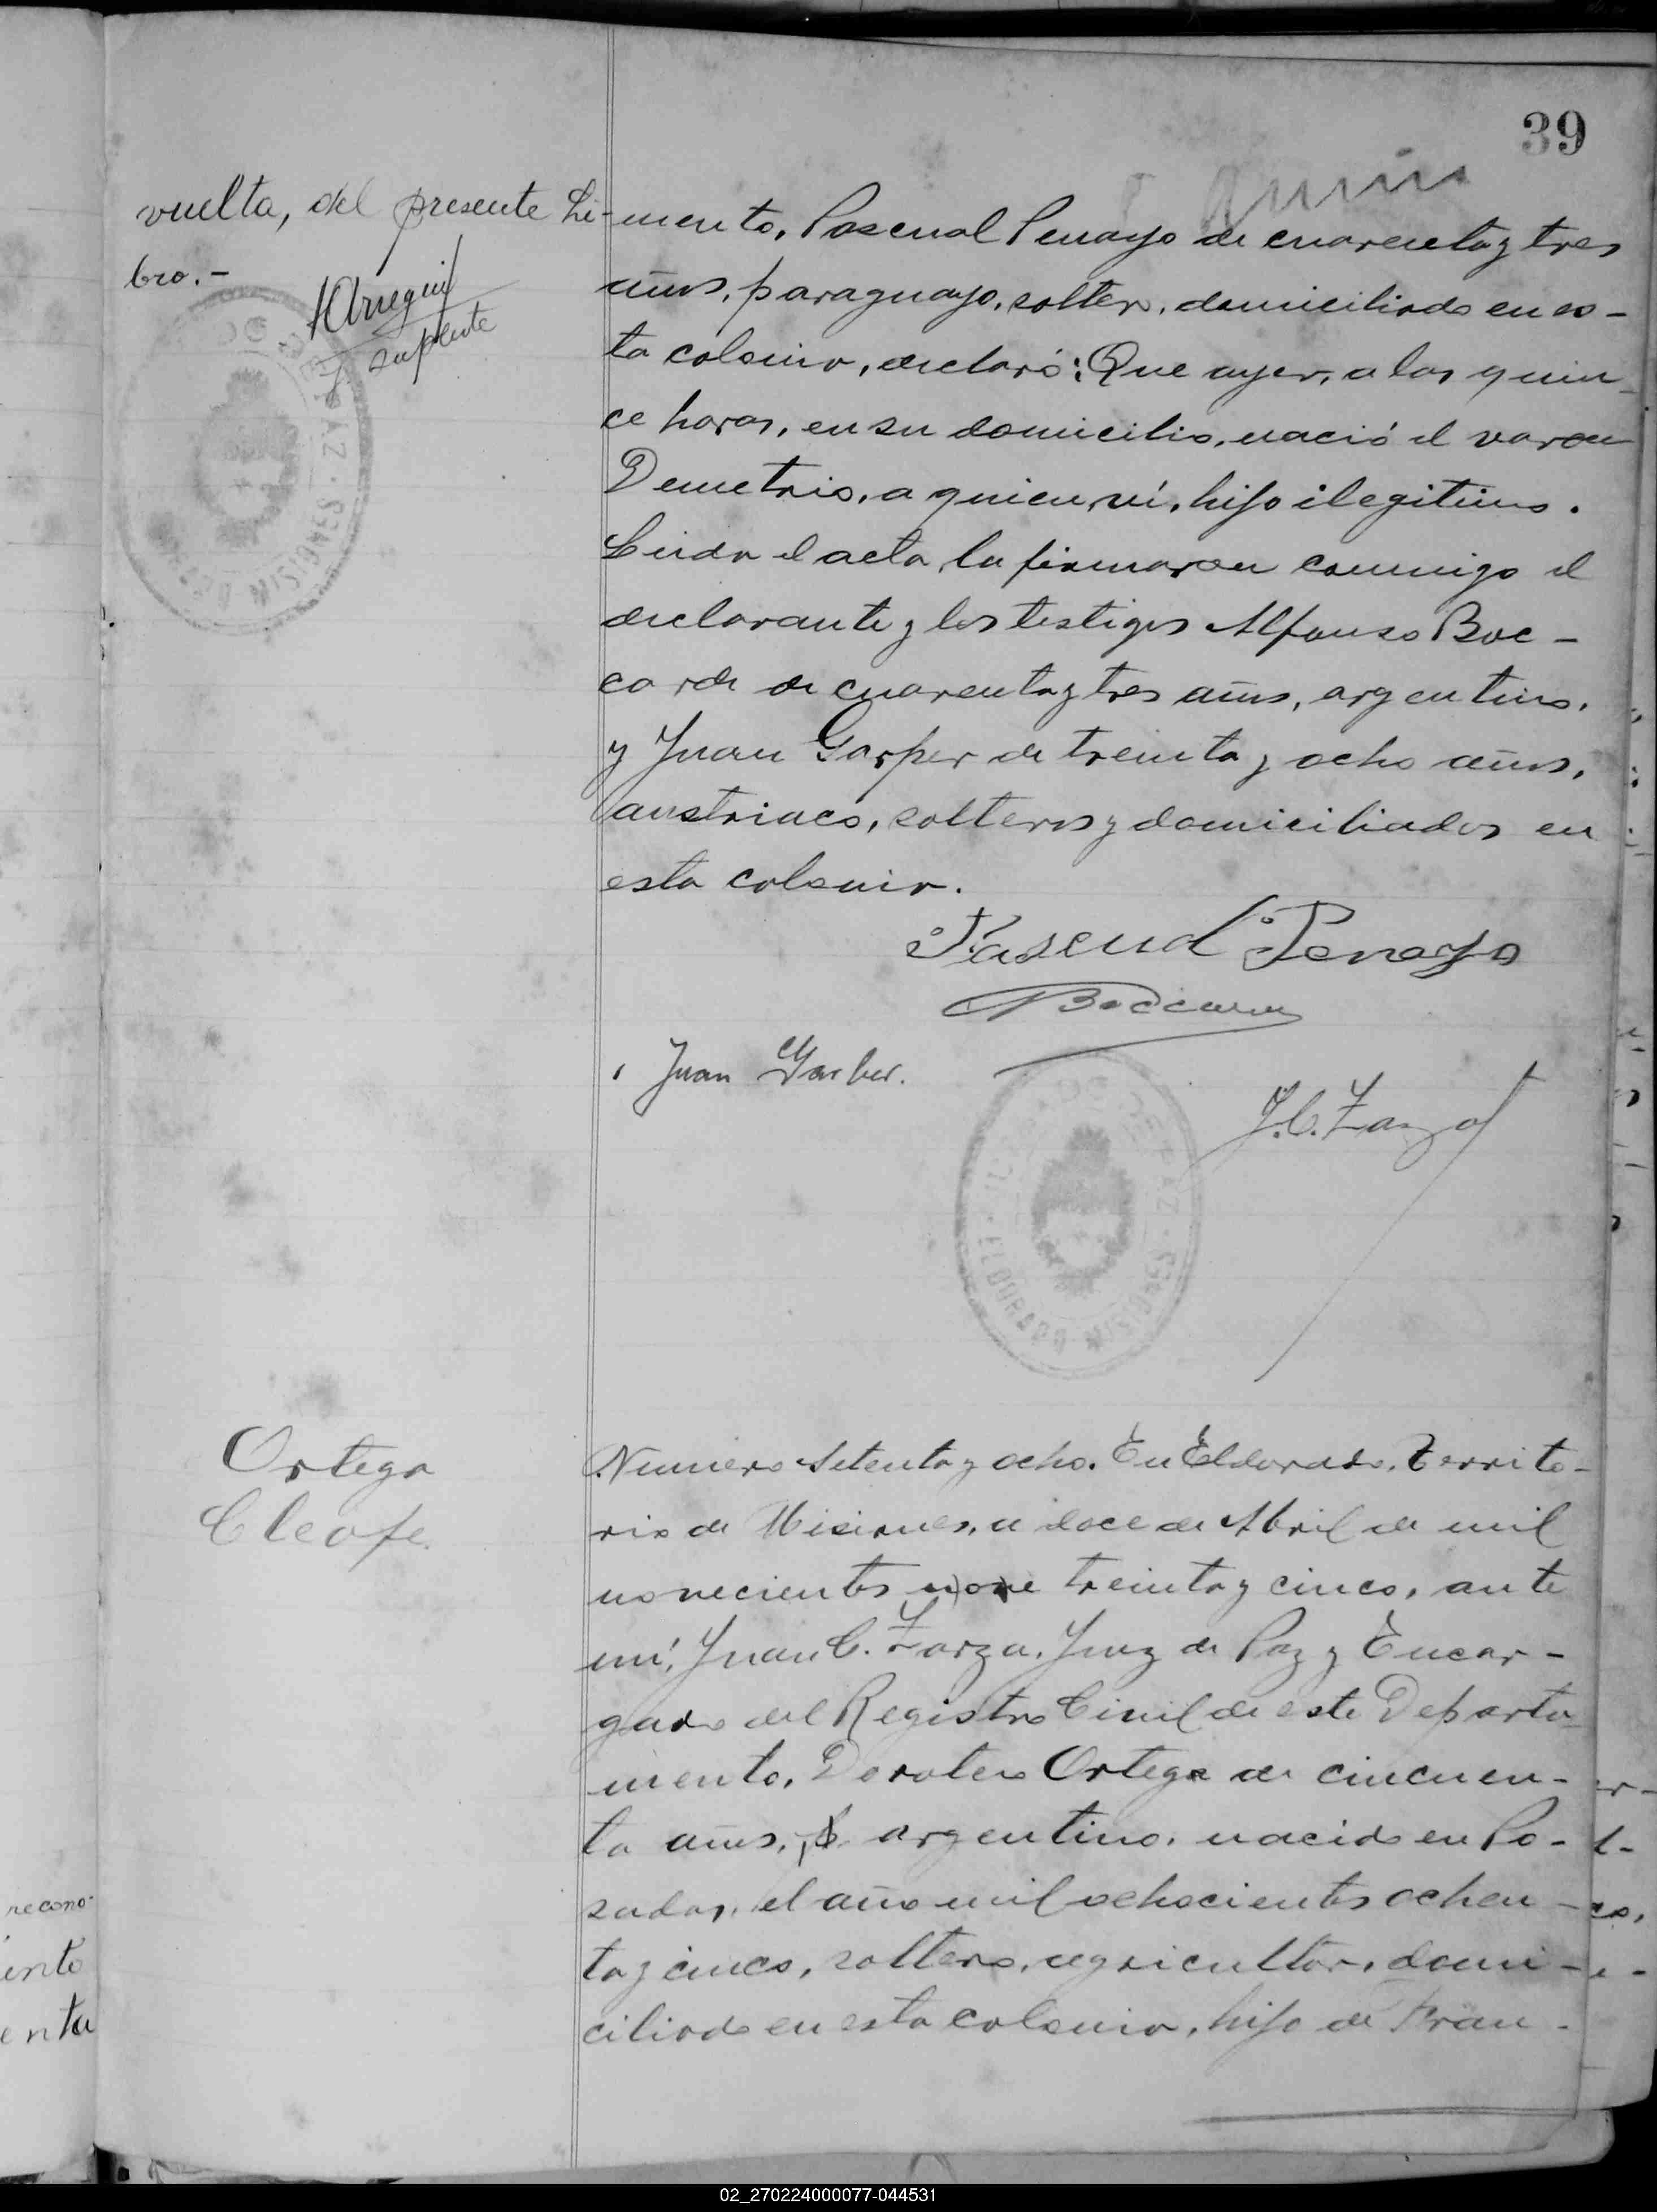 39
vuelta, del presente Li-
bro.-
HArregui
J. suplente
mento, Pascual Penayo de cuarenta y tres
años, paraguayo, soltero, domiciliado en es-
ta colonia, declaró: Que ayer, a las quin-
ce horas, en su domicilio, nació el varon
Demetrio, a quien ví, hijo ilegitimo.
Leida el acta, la firmaron conmigo el
declarante y los testigos Alfonso Boc-
cardi de cuarenta y tres años, argentino,
y Juan Garper de treinta y ocho años,
austriaco, solteros y domiciliados en
esta colonia.
Pascual Penayo
Juan Garber.
J.C. Zarza
JUZGADO DE PAZ
ELDORADO MISIONES
Ortega
Cleofe.
Numero Setenta y ocho. En Eldorado, Territo-
rio de Misiones, a doce de Abril de mil
novecientos treinta y cinco, ante
mí, Juan C. Zarza, Juez de Paz y Encar-
gado del Registro Civil de este Departa-
mento, Doroteo Ortega de cincuen-
ta años, argentino, nacido en Po-
sadas, el año mil ochocientos ochen-
ta y cinco, soltero, agricultor, domi-
ciliado en esta colonia, hijo de Fran-
recono-
ento
enta
02_270224000077-044531